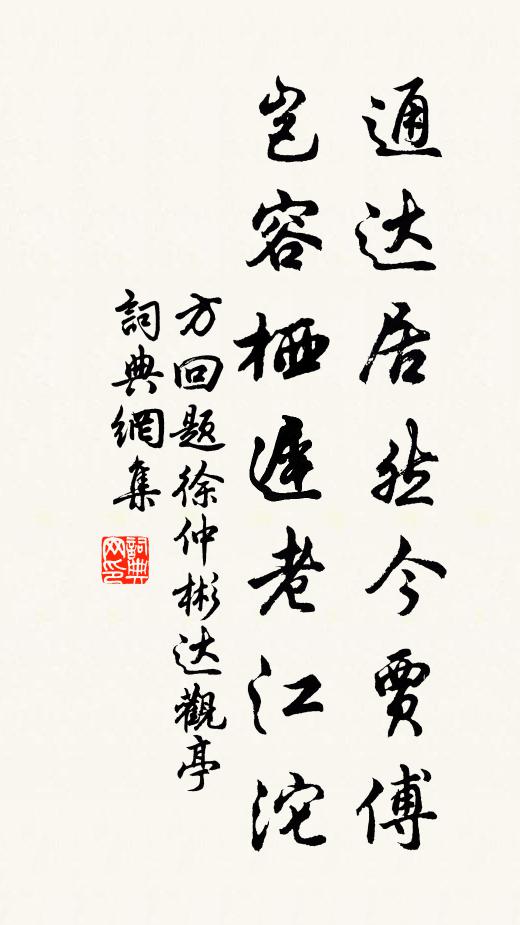 通达居然今賈傅
岂容栖遲老江沱
方回题徐仲彬达觀亭
詞典網集
詞典网印